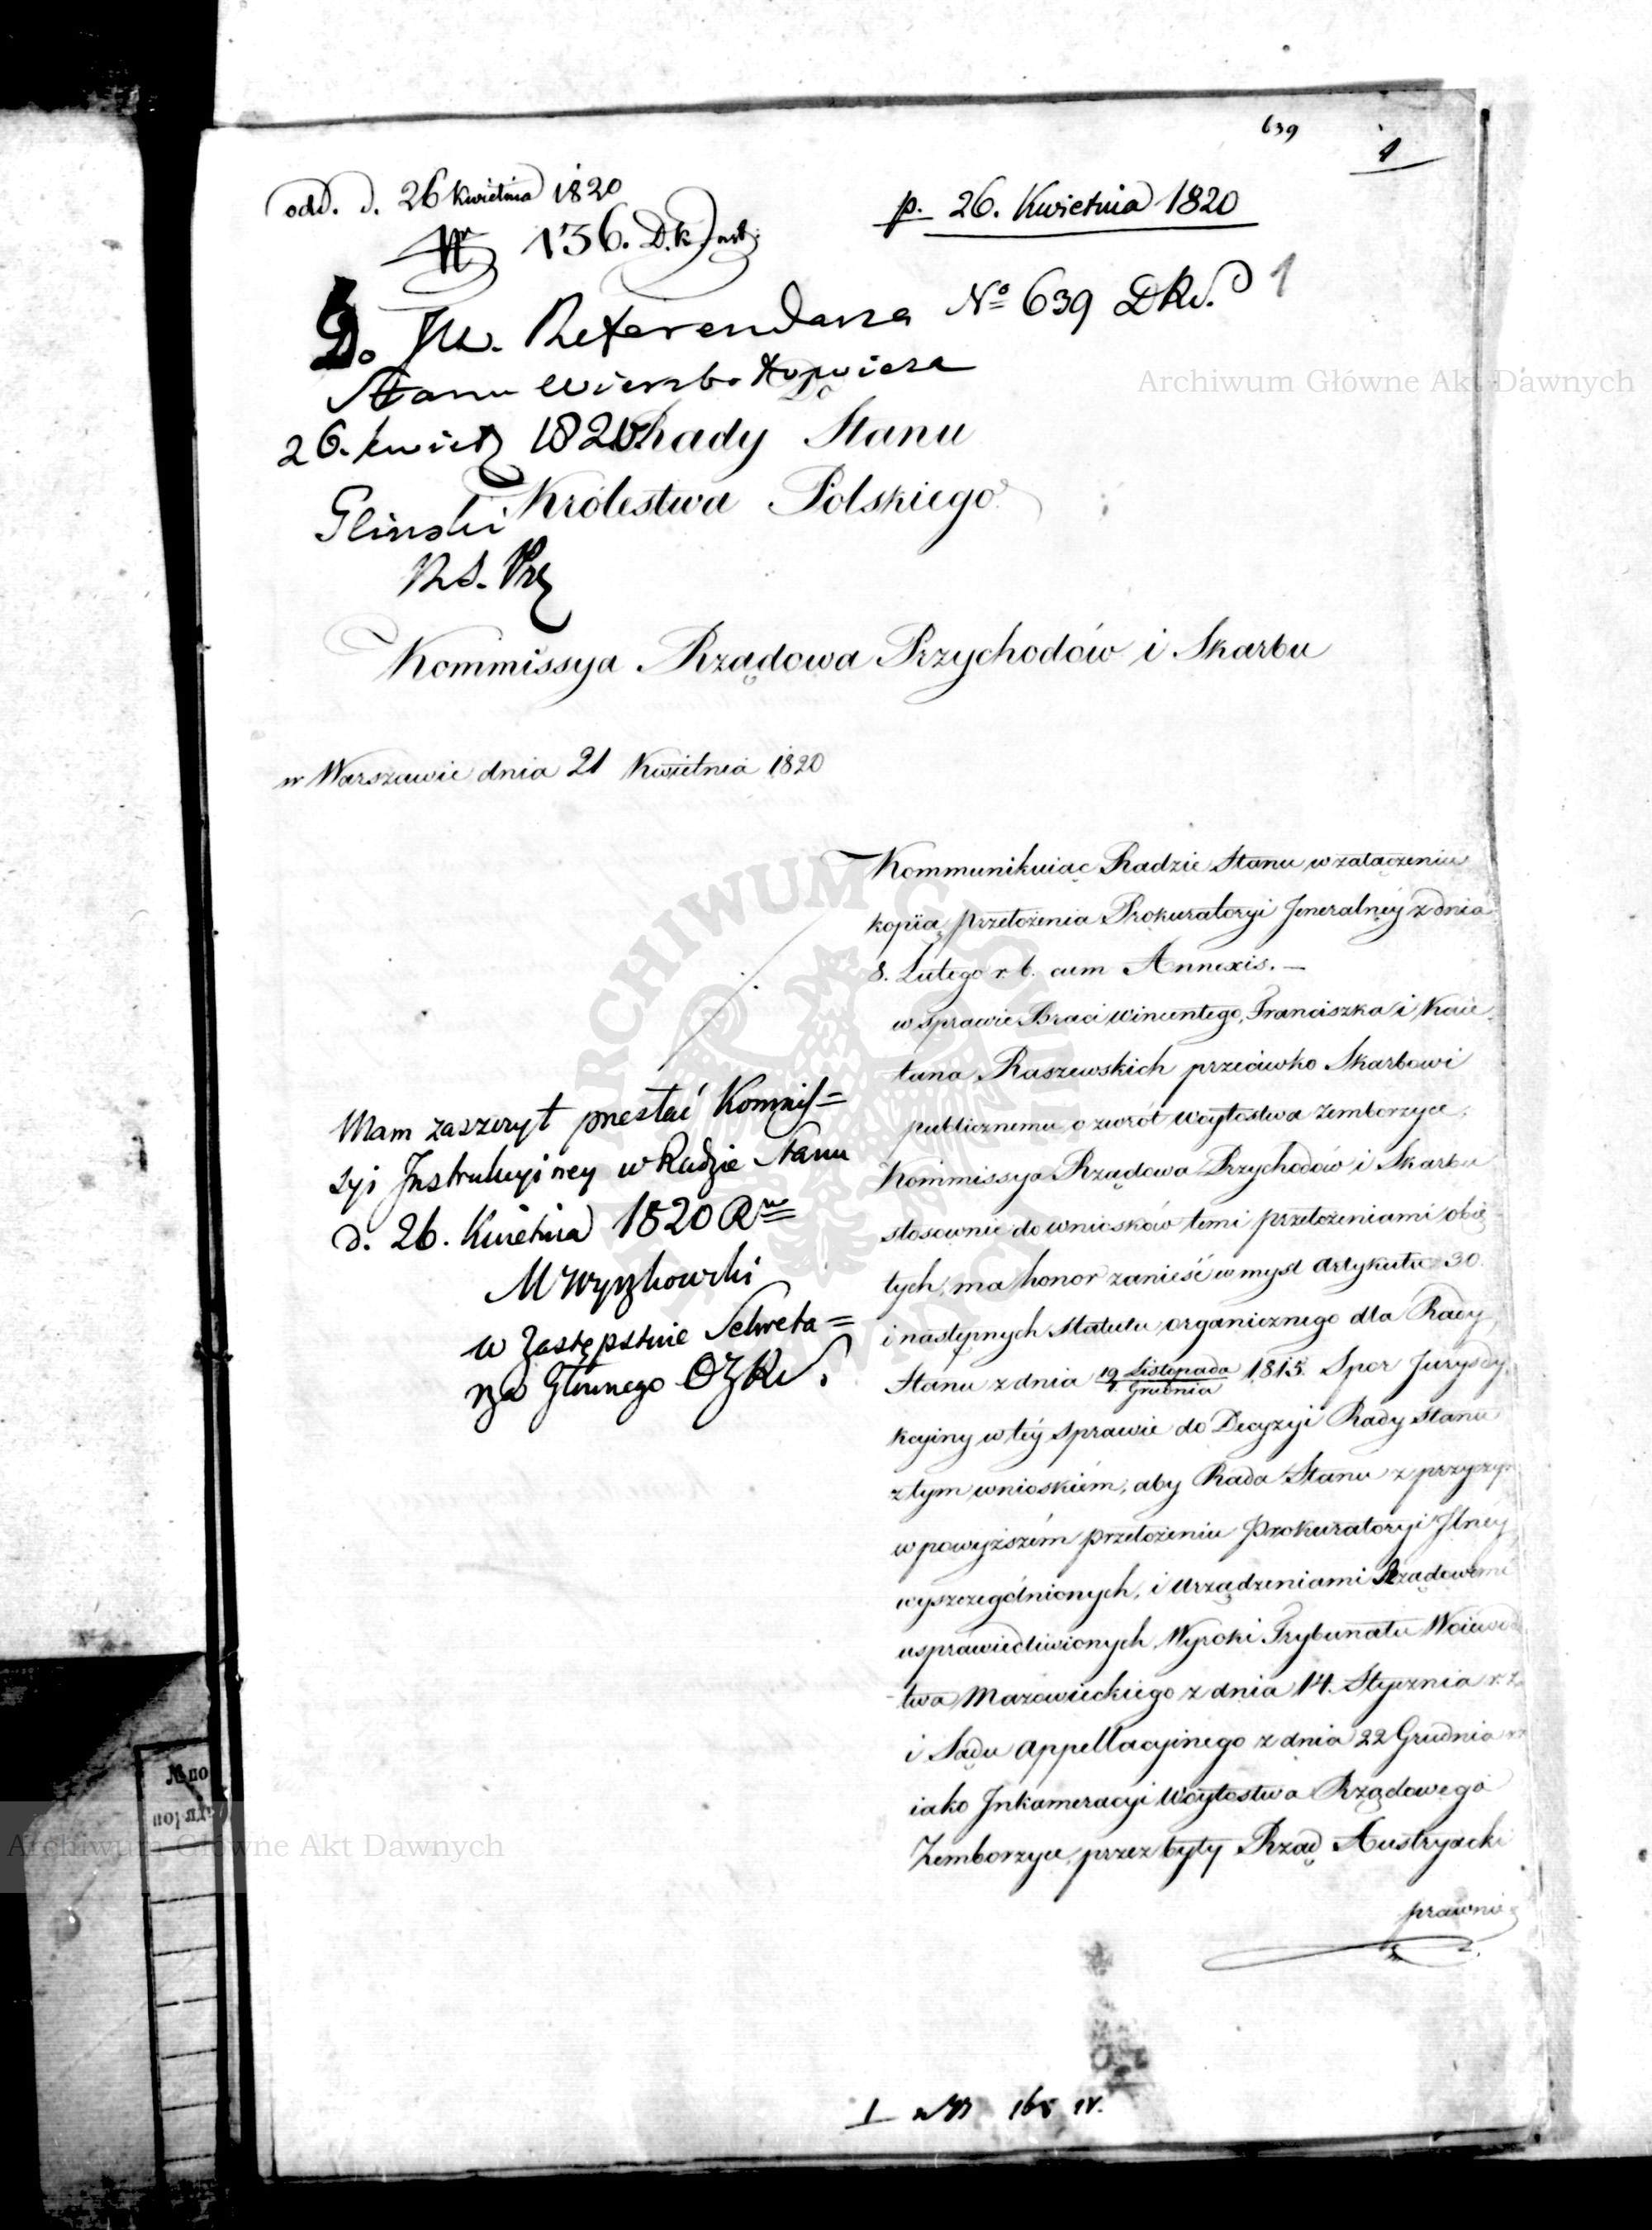 639
1
odd. d. 26 Kwietnia 1820
Nr 136. D.K. Inst:
p. 26. Kwietnia 1820
Nº 639 DKS. 1
Do JW. Referendarza
Stanu
26. kwiet 1820
Gliński
RS. Prz
Do
Rady Stanu
Królestwa Polskiego
Kommissya Rządowa Przychodów i Skarbu
w Warszawie dnia 21 Kwietnia 1820
Kommunikuiąc Radzie Stanu w załączeniu
kopią przełożenia Prokuratoryi Jeneralnéy z dnia
8. Lutego r. b. cum Annexis. —
w sprawie Braci Wincentego, Franciszka i Kaie
tana Raszewskich przeciwko Skarbowi
publicznemu o zwrót Woytostwa Zemborzyce,
Kommissya Rządowa Przychodów i Skarbu
stosownie do wniosków temi przełożeniami obię
tych, ma honor zanieść w myśl Artykułu 30.
i następnych Statutu organicznego dla Rady
Stanu z dnia 19 Listopada / 1. Grudnia 1815. Spor Jurysdy
kcyiny w téy sprawie do Decyzyi Rady Stanu
z tym wnioskiem, aby Rada Stanu z przyczyn
w powyższém przełożeniu Prokuratoryi Jlnéy
wyszczególnionych, i Urządzeniami Rządowemi
usprawiedliwionych, Wyroki Trybunału Woiewódz
twa Mazowieckiego z dnia 14. Stycznia r. z.
i Sądu Appellacyinego z dnia 22 Grudnia r. z.
iako Inkameracyi Woytostwa Rządowego
Zemborzyce, przez były Rząd Austryacki
prawnie
Mam zaszczyt przesłać Kommis=
syi Instrukcyiney w Radzie Stanu
d. 26. Kwietnia 1820 R
M Wyczhowski
w Zastępstwie Sekreta=
rza Głównego
Archiwum Główne Akt Dawnych
ARCHIWUM GŁÓWNE AKT DAWNYCH
Archiwum Główne Akt Dawnych